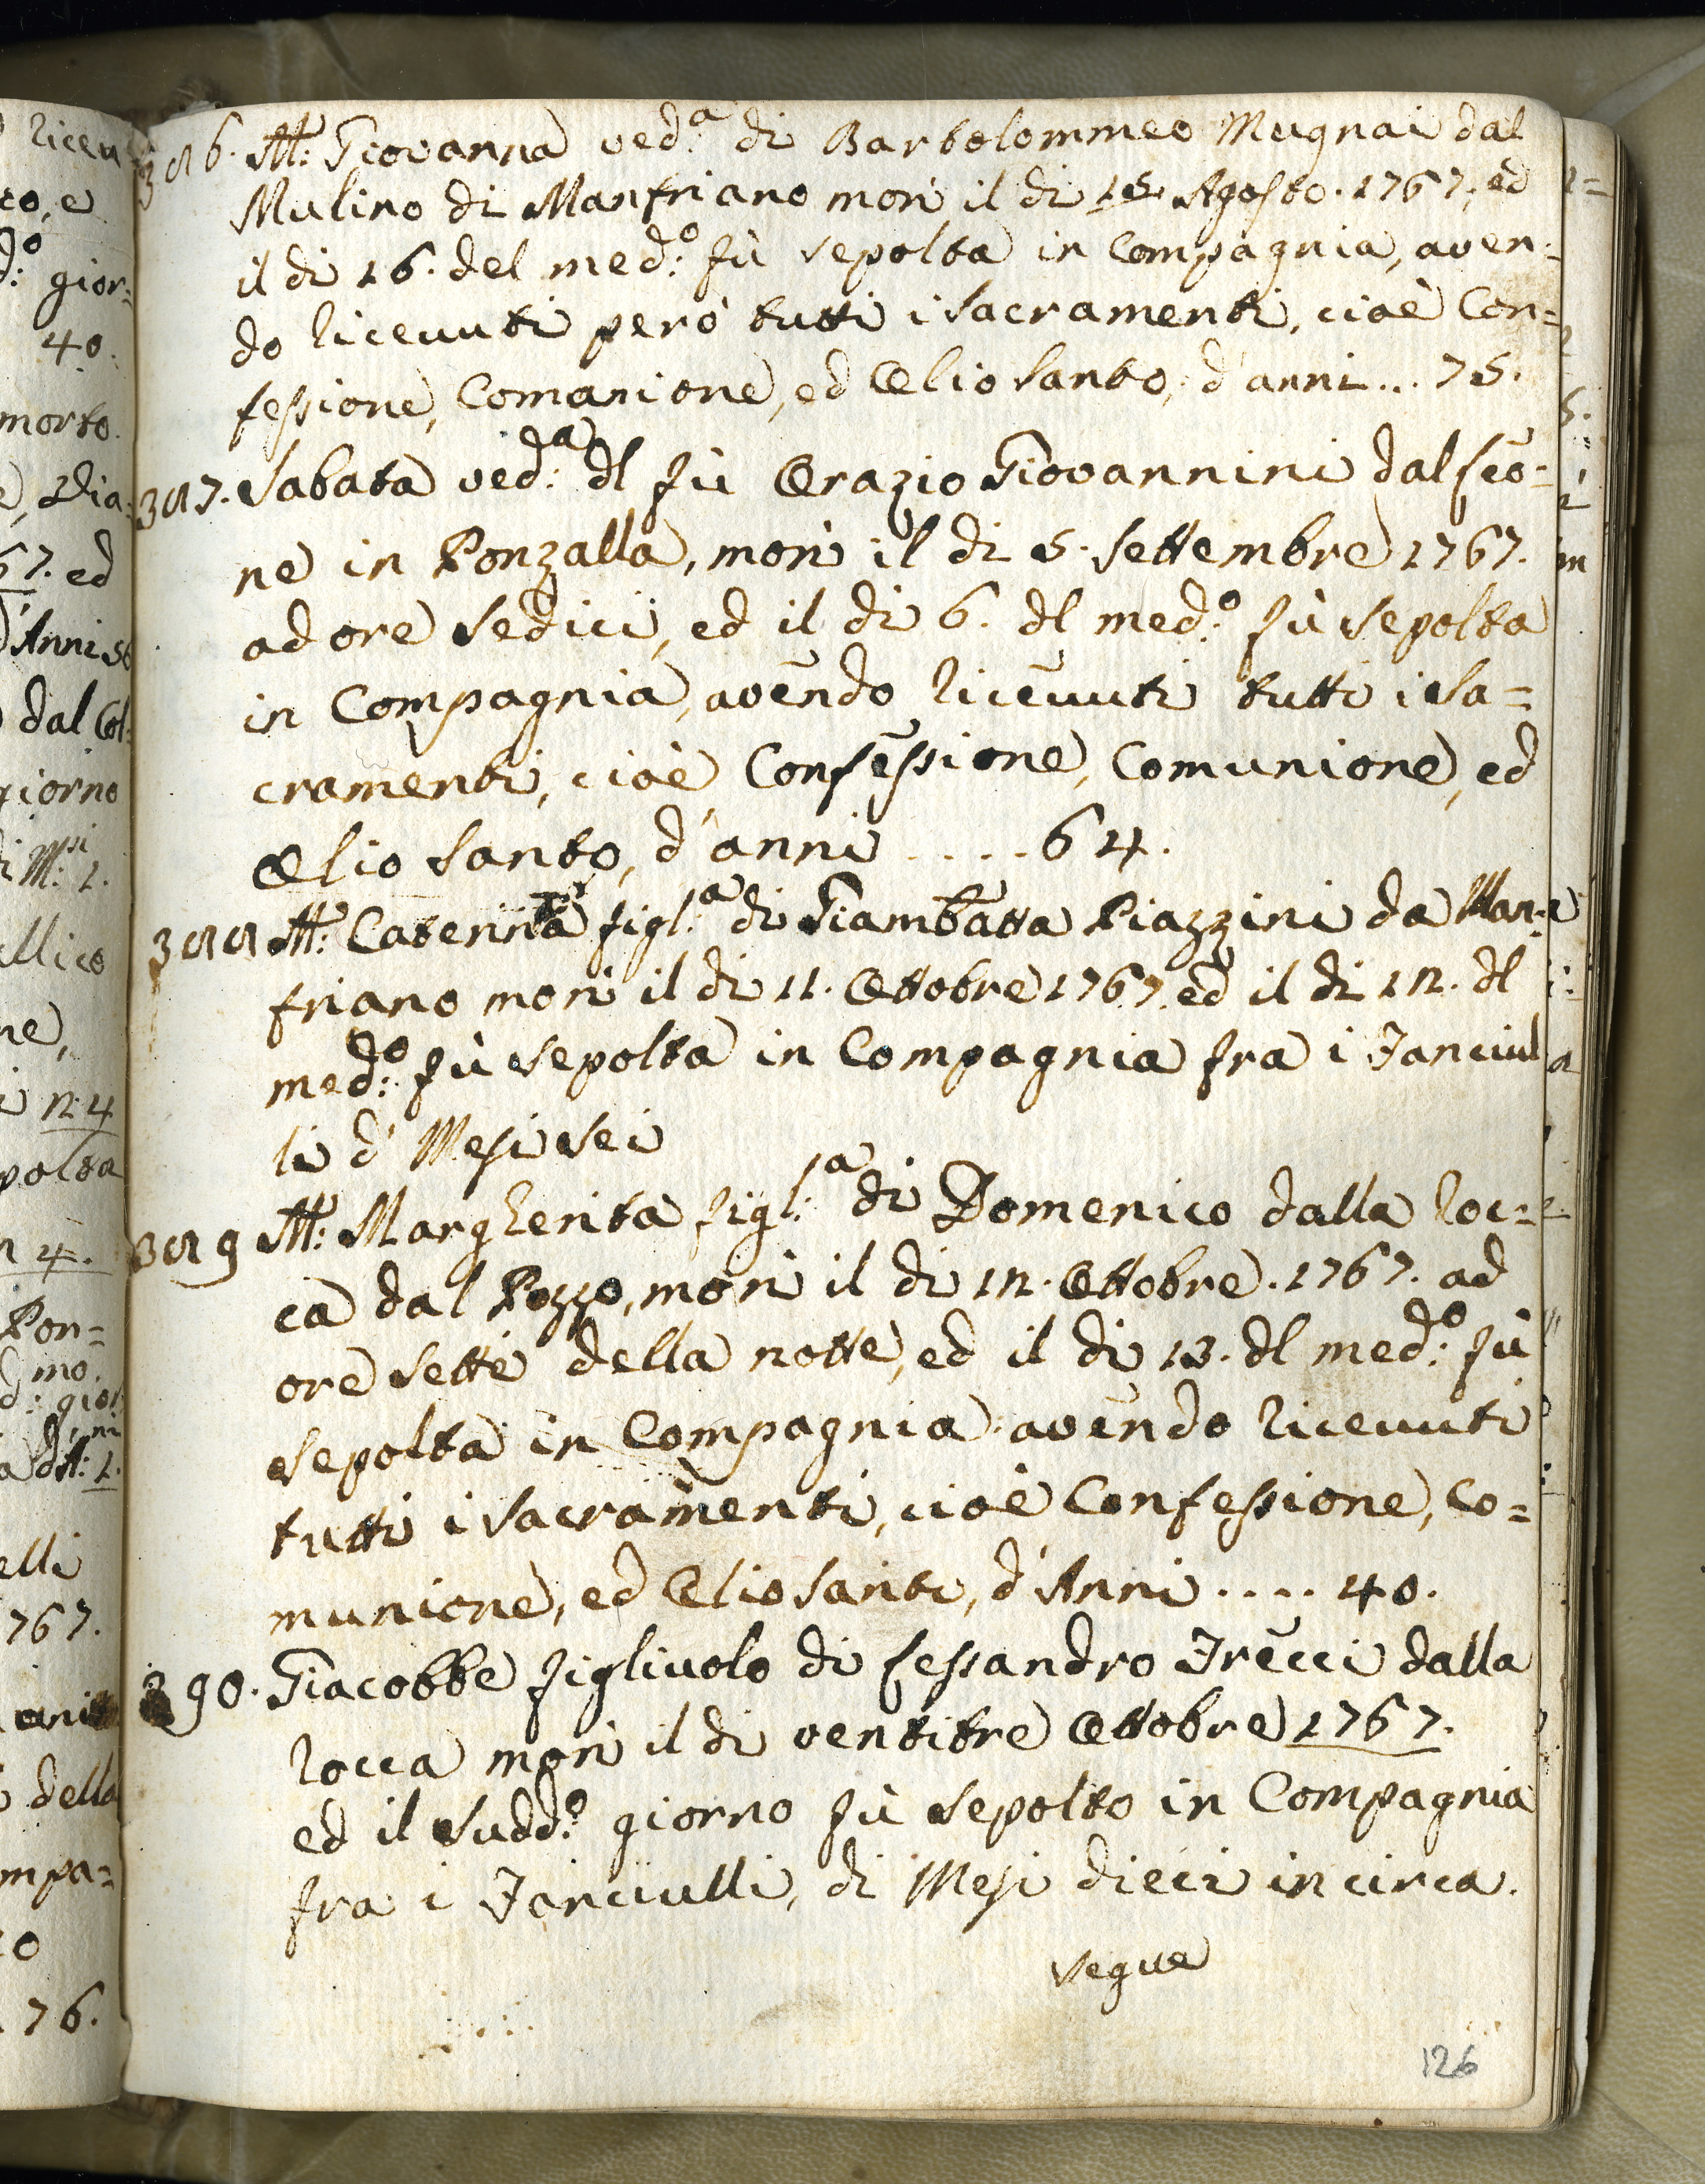 386. M: Giovanna ved:a di Bartolommeo Mugnai dal
Mulino di Manfriano morì il di 15 Agosto. 1767, ed
il di 16. del med:o fù sepolta in Compagnia, aven=
do ricevuti però tutti i Sacramenti, cioè Con=
fessione, Comunione, ed Olio Santo, d'anni... 75.
387. Sabata ved:a dl fù Orazio Giovannini dal Leo=
ne in Ponzalla, morì il di 5. Settembre 1767.
ad ore Sedici, ed il di 6. dl med:o fù Sepolta
in Compagnia, avendo ricevuti tutti i Sa=
cramenti, cioè Confessione, Comunione, ed
Olio Santo, d'anni ..... 64.
388 M: Caterina figl:a di Giambatta Piazzini da Man=
friano morì il di 11. Ottobre 1767. ed il di 12. dl
med:o fù Sepolta in Compagnia fra i Fanciul
li d' Mesi Sei
389 M: Margherita figl:a di Domenico dalla Roc=
ca dal Pozzo, morì il di 12. Ottobre. 1767. ad
ore Sette della notte, ed il di 13. dl med:o fù
Sepolta in Compagnia avendo ricevuti
tutti i Sacramenti, cioè Confessione, Co=
munione, ed Olio Santo, d'Anni .... 40.
390. Giacobbe figliuolo di Lessandro Frecci dalla
Rocca morì il di ventitre Ottobre 1767.
ed il Sudd:o giorno fù Sepolto in Compagnia
fra i Fanciulli, di Mesi dieci in circa.
Segue
126